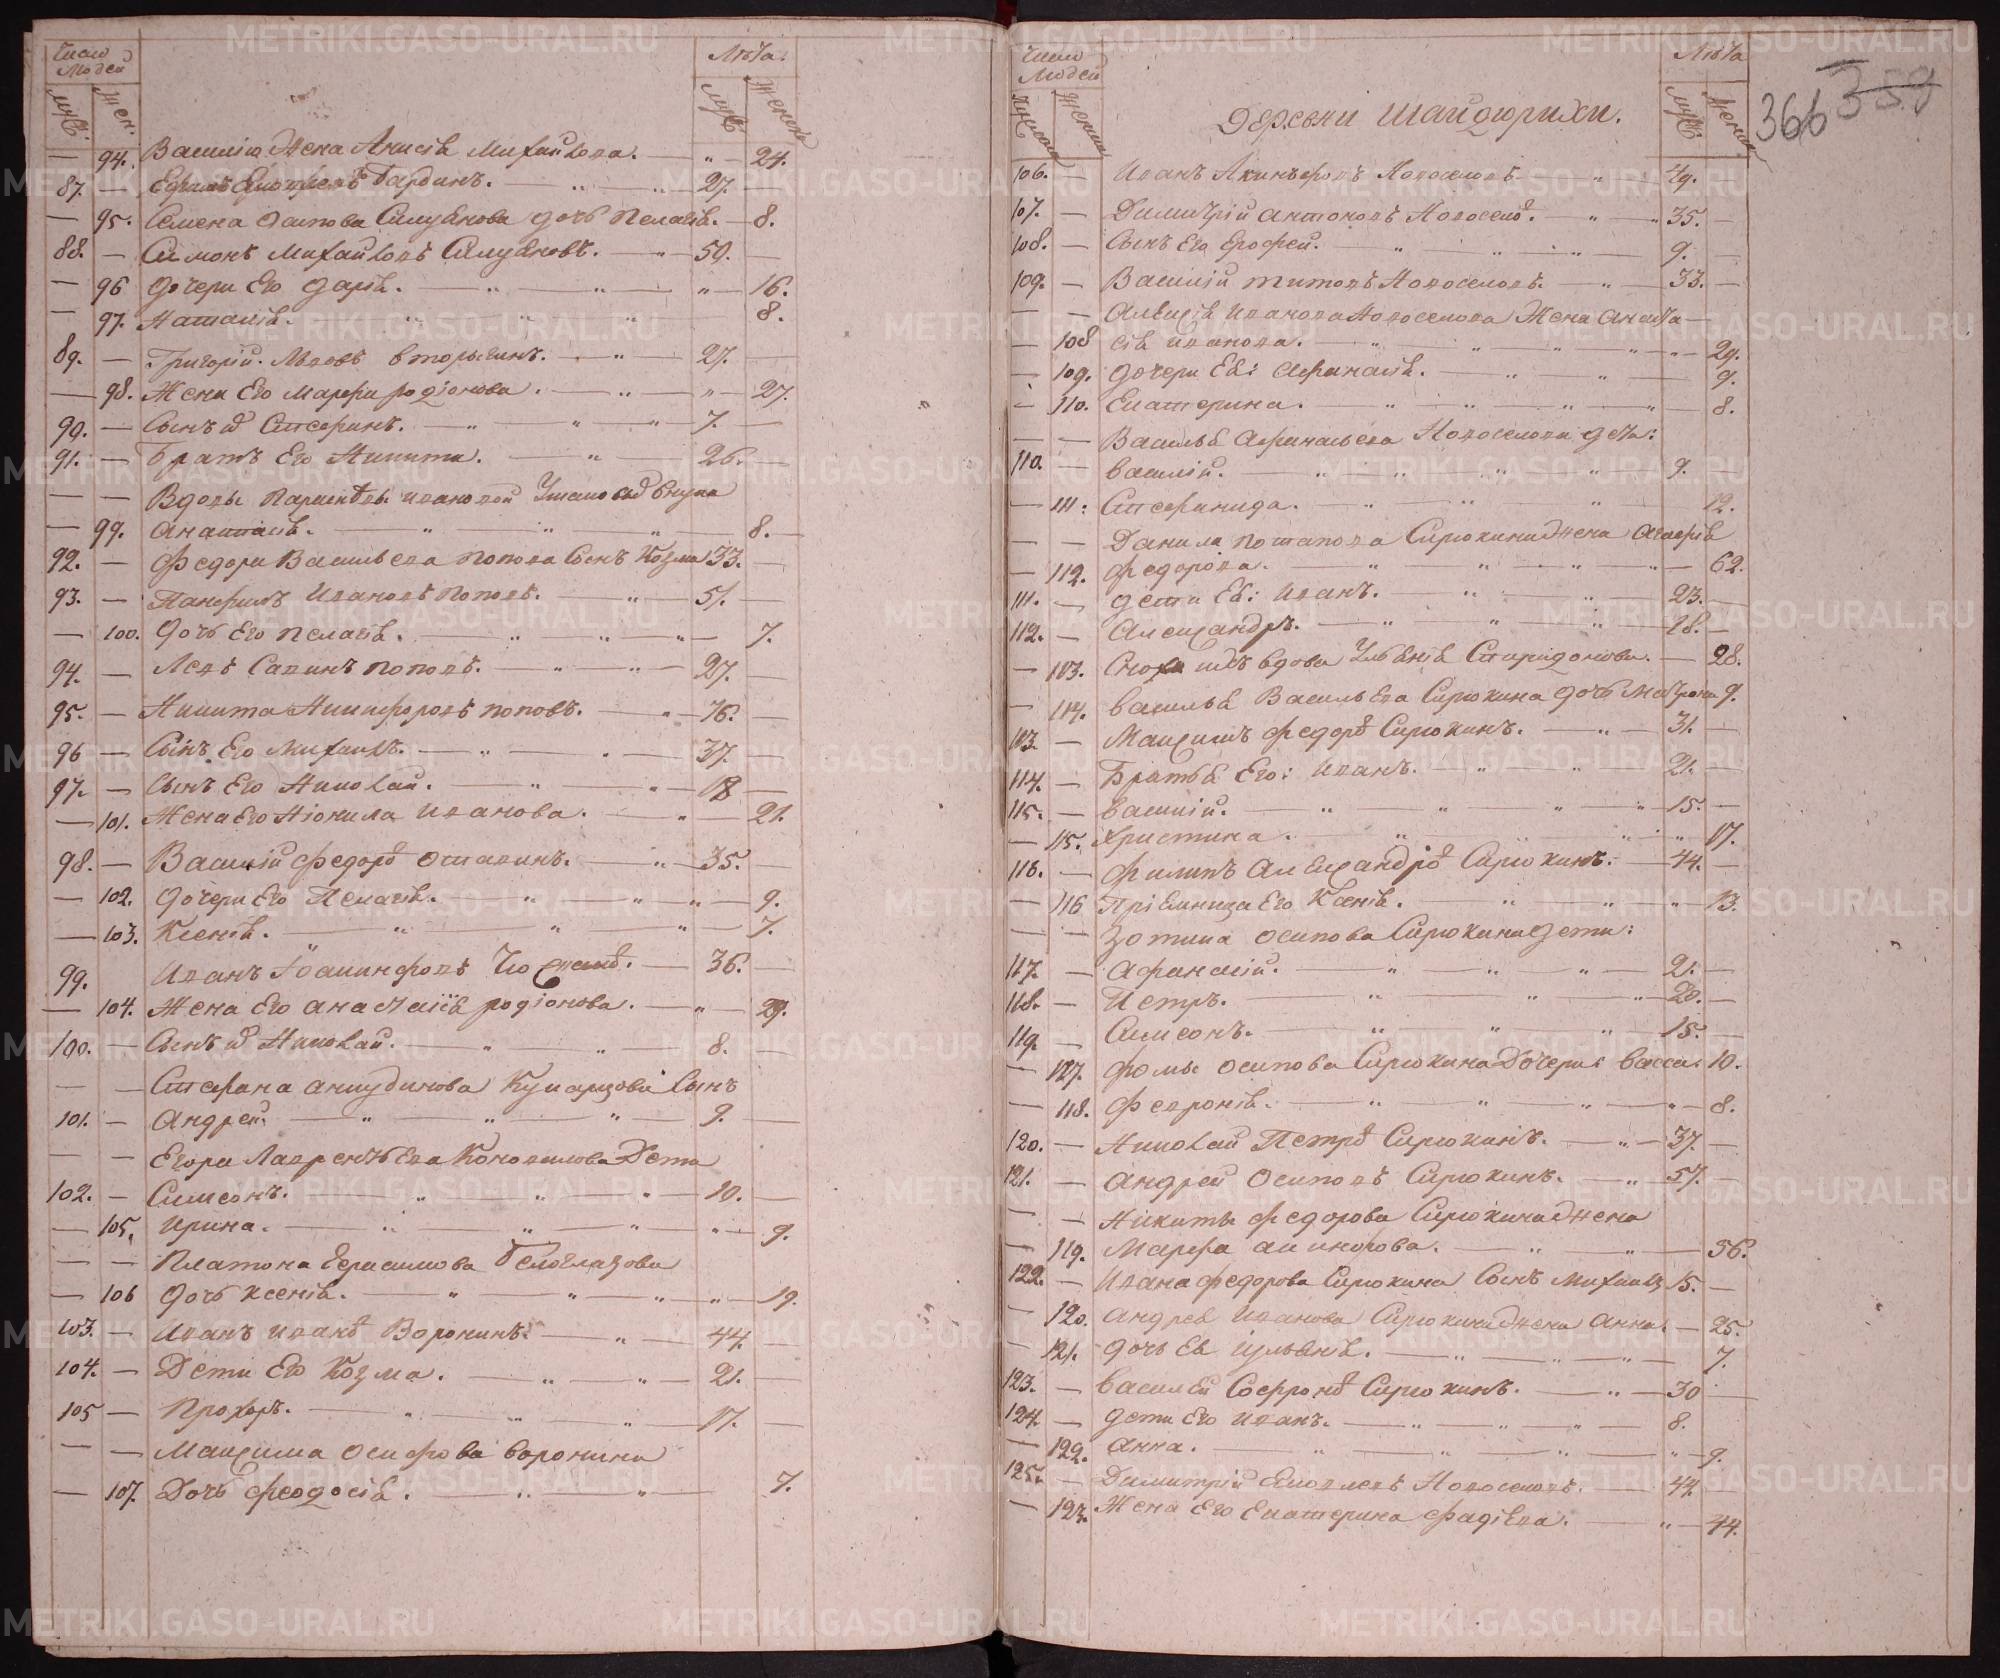 Число Людей
Муж. Жен.
Лѣта.
Муж. Женск.
— 94. Василія Жена Анисія Михайлова. — „ — 24.
87. — Ефимъ Гардинъ. „ „ 27. —
— 95. Семена Осипова Силуянова дочь Пелагія. — 8.
88. — Симонъ Михайловъ Силуяновъ. — „ — 50. —
— 96 Дочери Его Дарія. — „ — „ — „ — 16.
— 97. Наталія. „ „ „ 8.
89. — Григорій Львовъ Вторыгинъ. — „ — 27. —
— 98. Жена Его Марфа родіонова. — „ — „ — 27.
90. — Сынъ Стефанъ. — „ — „ — „ — 7. —
91. — Братъ Его Никита. — „ — 26. —
— — Вдовы Параскевы Ивановой внука
— 99. Анастасія. — „ „ „ — 8. —
92. — Федора Васильева Попова Сынъ Козма 33. —
93. — Панфилъ Ивановъ Поповъ. — „ — 51. —
— 100. Дочь Его Пелагія. — „ „ „ — 7.
94. — Левъ Савинъ Поповъ. — „ — „ — 27. —
95. — Никита Никифоровъ Поповъ. — „ — 76. —
96 — Сынъ Его Михаилъ. — „ — „ — 37. —
97. — Сынъ Его Николай. — „ — „ — 18 —
— 101. Жена Его Неонила Иванова. — „ — 21.
98. — Василій Федоровъ Остапинъ. — „ — 35. —
— 102. Дочери Его Пелагія. „ „ „ — 9.
— 103. Ксенія. — „ „ „ — 7.
99. Иванъ Іоакинфовъ 36. —
— 104. Жена Его Анастасія родіонова. — „ — 29.
100. — Сынъ Николай. — „ „ 8. —
— — Стефана Анкудинова Сынъ
101. — Андрей. — „ — „ — „ — 9. —
— — Егора Лаврентьева Коновалова Дети
102. — Симеонъ. — „ — „ — „ — 10. —
— 105. Ирина. — „ „ „ „ — 9.
— — Платона Герасимова Белоглазова
— 106 Дочь Ксенія. — „ — „ — „ — „ — 19.
103. — Иванъ Ивановъ Воронинъ. — „ — 44. —
104. — Дети Его Козма. — „ — „ — 21. —
105 — Прохоръ. — „ „ „ — 17. —
— — Максима Осифова Воронина
— 107. Дочь Феодосія. — „ „ — 7.
Число Людей
Мужска Женска
Лѣта
Муж. Женск.
366 359
Деревни Шайдюрихи.
106. — Иванъ Акинфовъ Новоселовъ — „ — 49. —
107. — Димитрій Антоновъ Новоселовъ. — „ — „ 35. —
108. — Сынъ Его Ерофей. — „ „ „ — 9. —
109. — Василій Титовъ Новоселовъ. — „ — 33. —
— — Алексія Иванова Новоселова Жена Анаста —
— 108 сія Иванова. — „ „ „ „ „ — 29.
— 109. Дочери Ея: Афанасія. — „ — „ — 9.
— 110. Екатерина. „ „ „ „ — 8.
— — Василья Афанасьева Новоселова дети:
110. — Василій. — „ „ „ „ 9. —
— 111. Стефанида. — „ „ „ 12.
— — Данила Потапова Сирюкина Жена Агафія
— 112. Федорова. — „ „ „ „ — 62.
111. — Дети Ея: Иванъ. — „ „ — 23. —
112. — Александръ. — „ „ „ 18. —
— 113. Сноха вдова Ульянія Спиридонова. — 28.
— 114. Василья Васильева Сирюкина дочь Матрона 9.
113. — Максимъ Федоровъ Сирюкинъ. — „ — 31. —
114. — Братья Его: Иванъ. — „ „ — 21. —
115. — Василій. — „ „ „ „ — 15. —
— 115. Христина. — „ „ „ „ 17.
116. — Филипъ Александровъ Сирюкинъ. — 44. —
— 116 Пріемница Его Ксенія. — „ „ „ — 13.
— — Зотика Осипова Сирюкина Дети:
117. — Афанасій. — „ „ „ — 21. —
118. — Петръ. — „ „ „ 20. —
119. — Симсонъ. — „ „ „ — 15. —
— 117. Фомы Осипова Сирюкина Дочери: Васса: 10.
— 118. Февронія. — „ „ „ „ — 8.
120. — Николай Петровъ Сирюкинъ. — „ — 37. —
121. — Андрей Осиповъ Сирюкинъ. — „ — 57. —
— — Никиты Федорова Сирюкина Жена
— 119. Марфа — „ „ — 56.
122. — Ивана Федорова Сирюкина Сынъ Михаилъ 15. —
— 120. Андрея Иванова Сирюкина Жена Анна: — 25.
— 121. Дочь Ея Ульянія. — „ „ „ „ — 7.
123. — Василій Софроновъ Сирюкинъ. — „ — 30 —
124. — Дети Его Иванъ. — „ „ „ — 8.
— 122. Анна. — „ „ „ „ — 9.
125. — Димитрій Новоселовъ. — 44. —
— 123. Жена Его Екатерина Фадѣева. — „ — 44.
METRIKI.GASO-URAL.RU